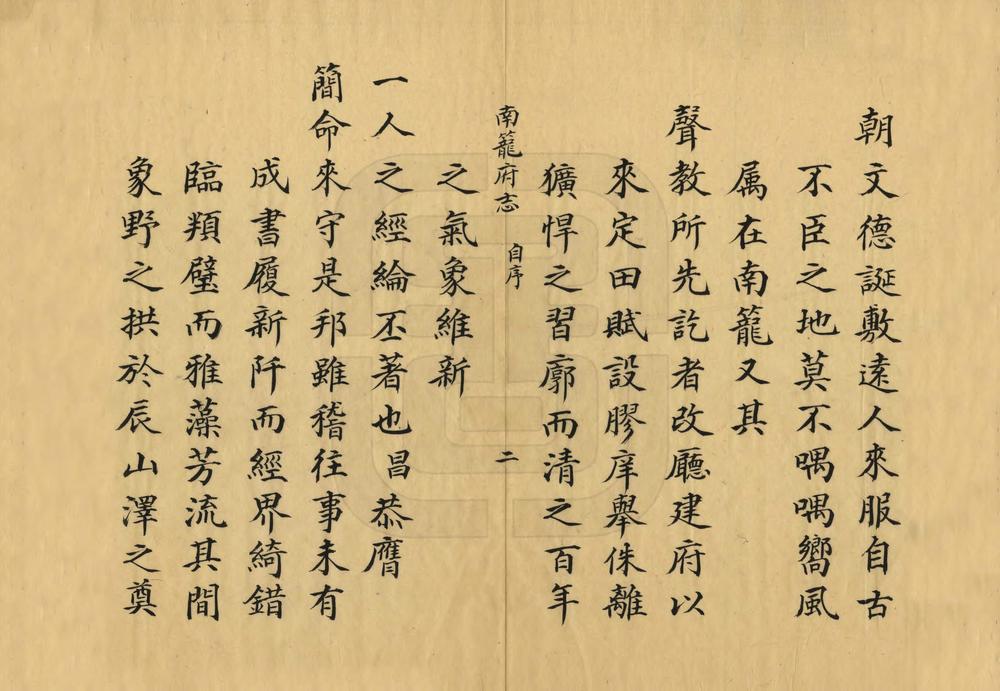 朝文德誕敷遠人來服自古
不臣之地莫不喁喁嚮風
属在南籠又其
聲教所先訖者改廳建府以
來定田賦設膠庠舉侏離
獷悍之習廓而清之百年
南籠府志 自序 二
之氣象維新
一人之經綸丕著也昌恭膺
簡命來守是邦雖稽往事未有
成書履新阡而經界綺錯
臨頖璧而雅藻芳流其間
象野之拱於辰山澤之奠